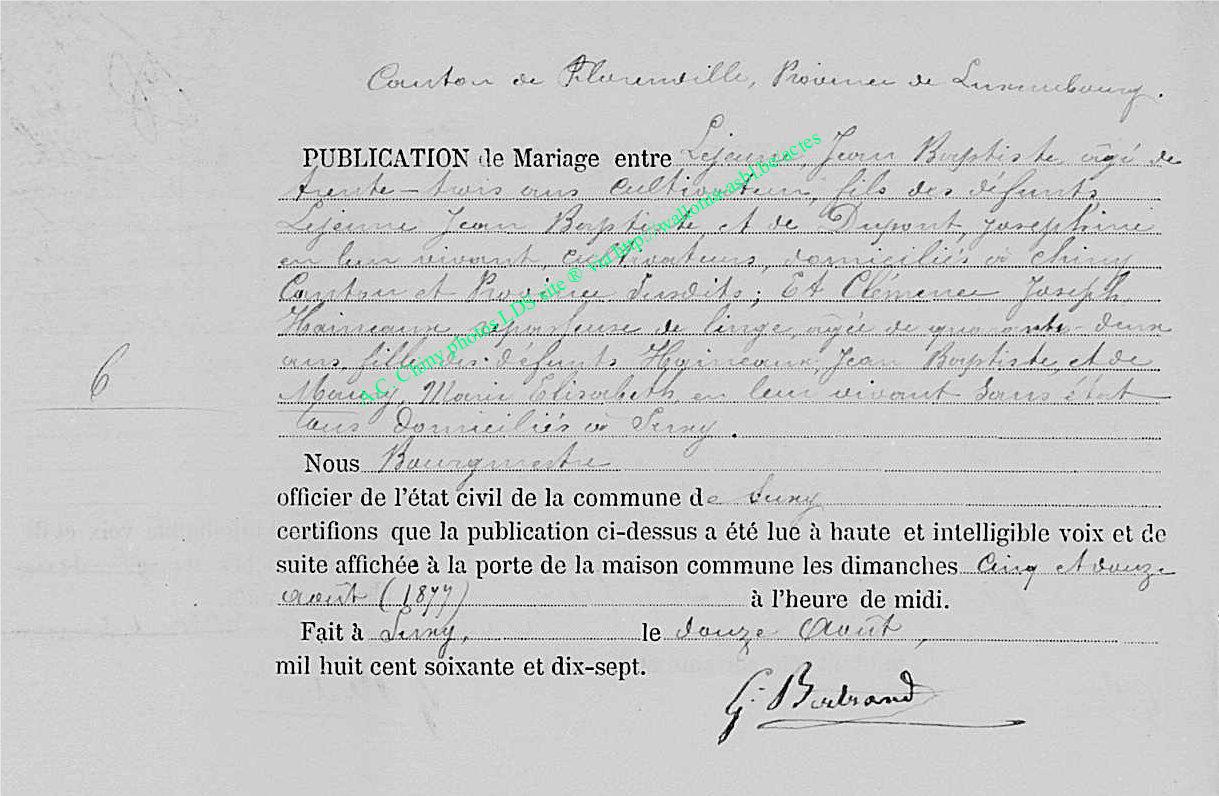 Canton de Florenville, Province de Luxembourg.
PUBLICATION de Mariage entre Lejeune, Jean Baptiste âgé de
trente-trois ans cultivateur, fils des défunts
Lejeune Jean Baptiste et de Dupont, Joséphine
en leur vivant, cultivateurs, domiciliés à Chiny
Canton et Province susdits; Et Clémence Joseph
Haineaux, repasseuse de linge, âgée de quarante-deux
ans, fille des défunts Haineaux, Jean Baptiste, et de
Marie Elisabeth, en leur vivant sans état
tous domiciliés à Suxy.
6
Nous Bourgmestre
officier de l'état civil de la commune de Suxy
certifions que la publication ci-dessus a été lue à haute et intelligible voix et de
suite affichée à la porte de la maison commune les dimanches cinq et douze
août (1877) à l'heure de midi.
Fait à Suxy, le douze Août,
mil huit cent soixante et dix-sept.
G. Bertrand
A.C. Chiny photos LDS site ® via http://wallonia-asbl.be/actes